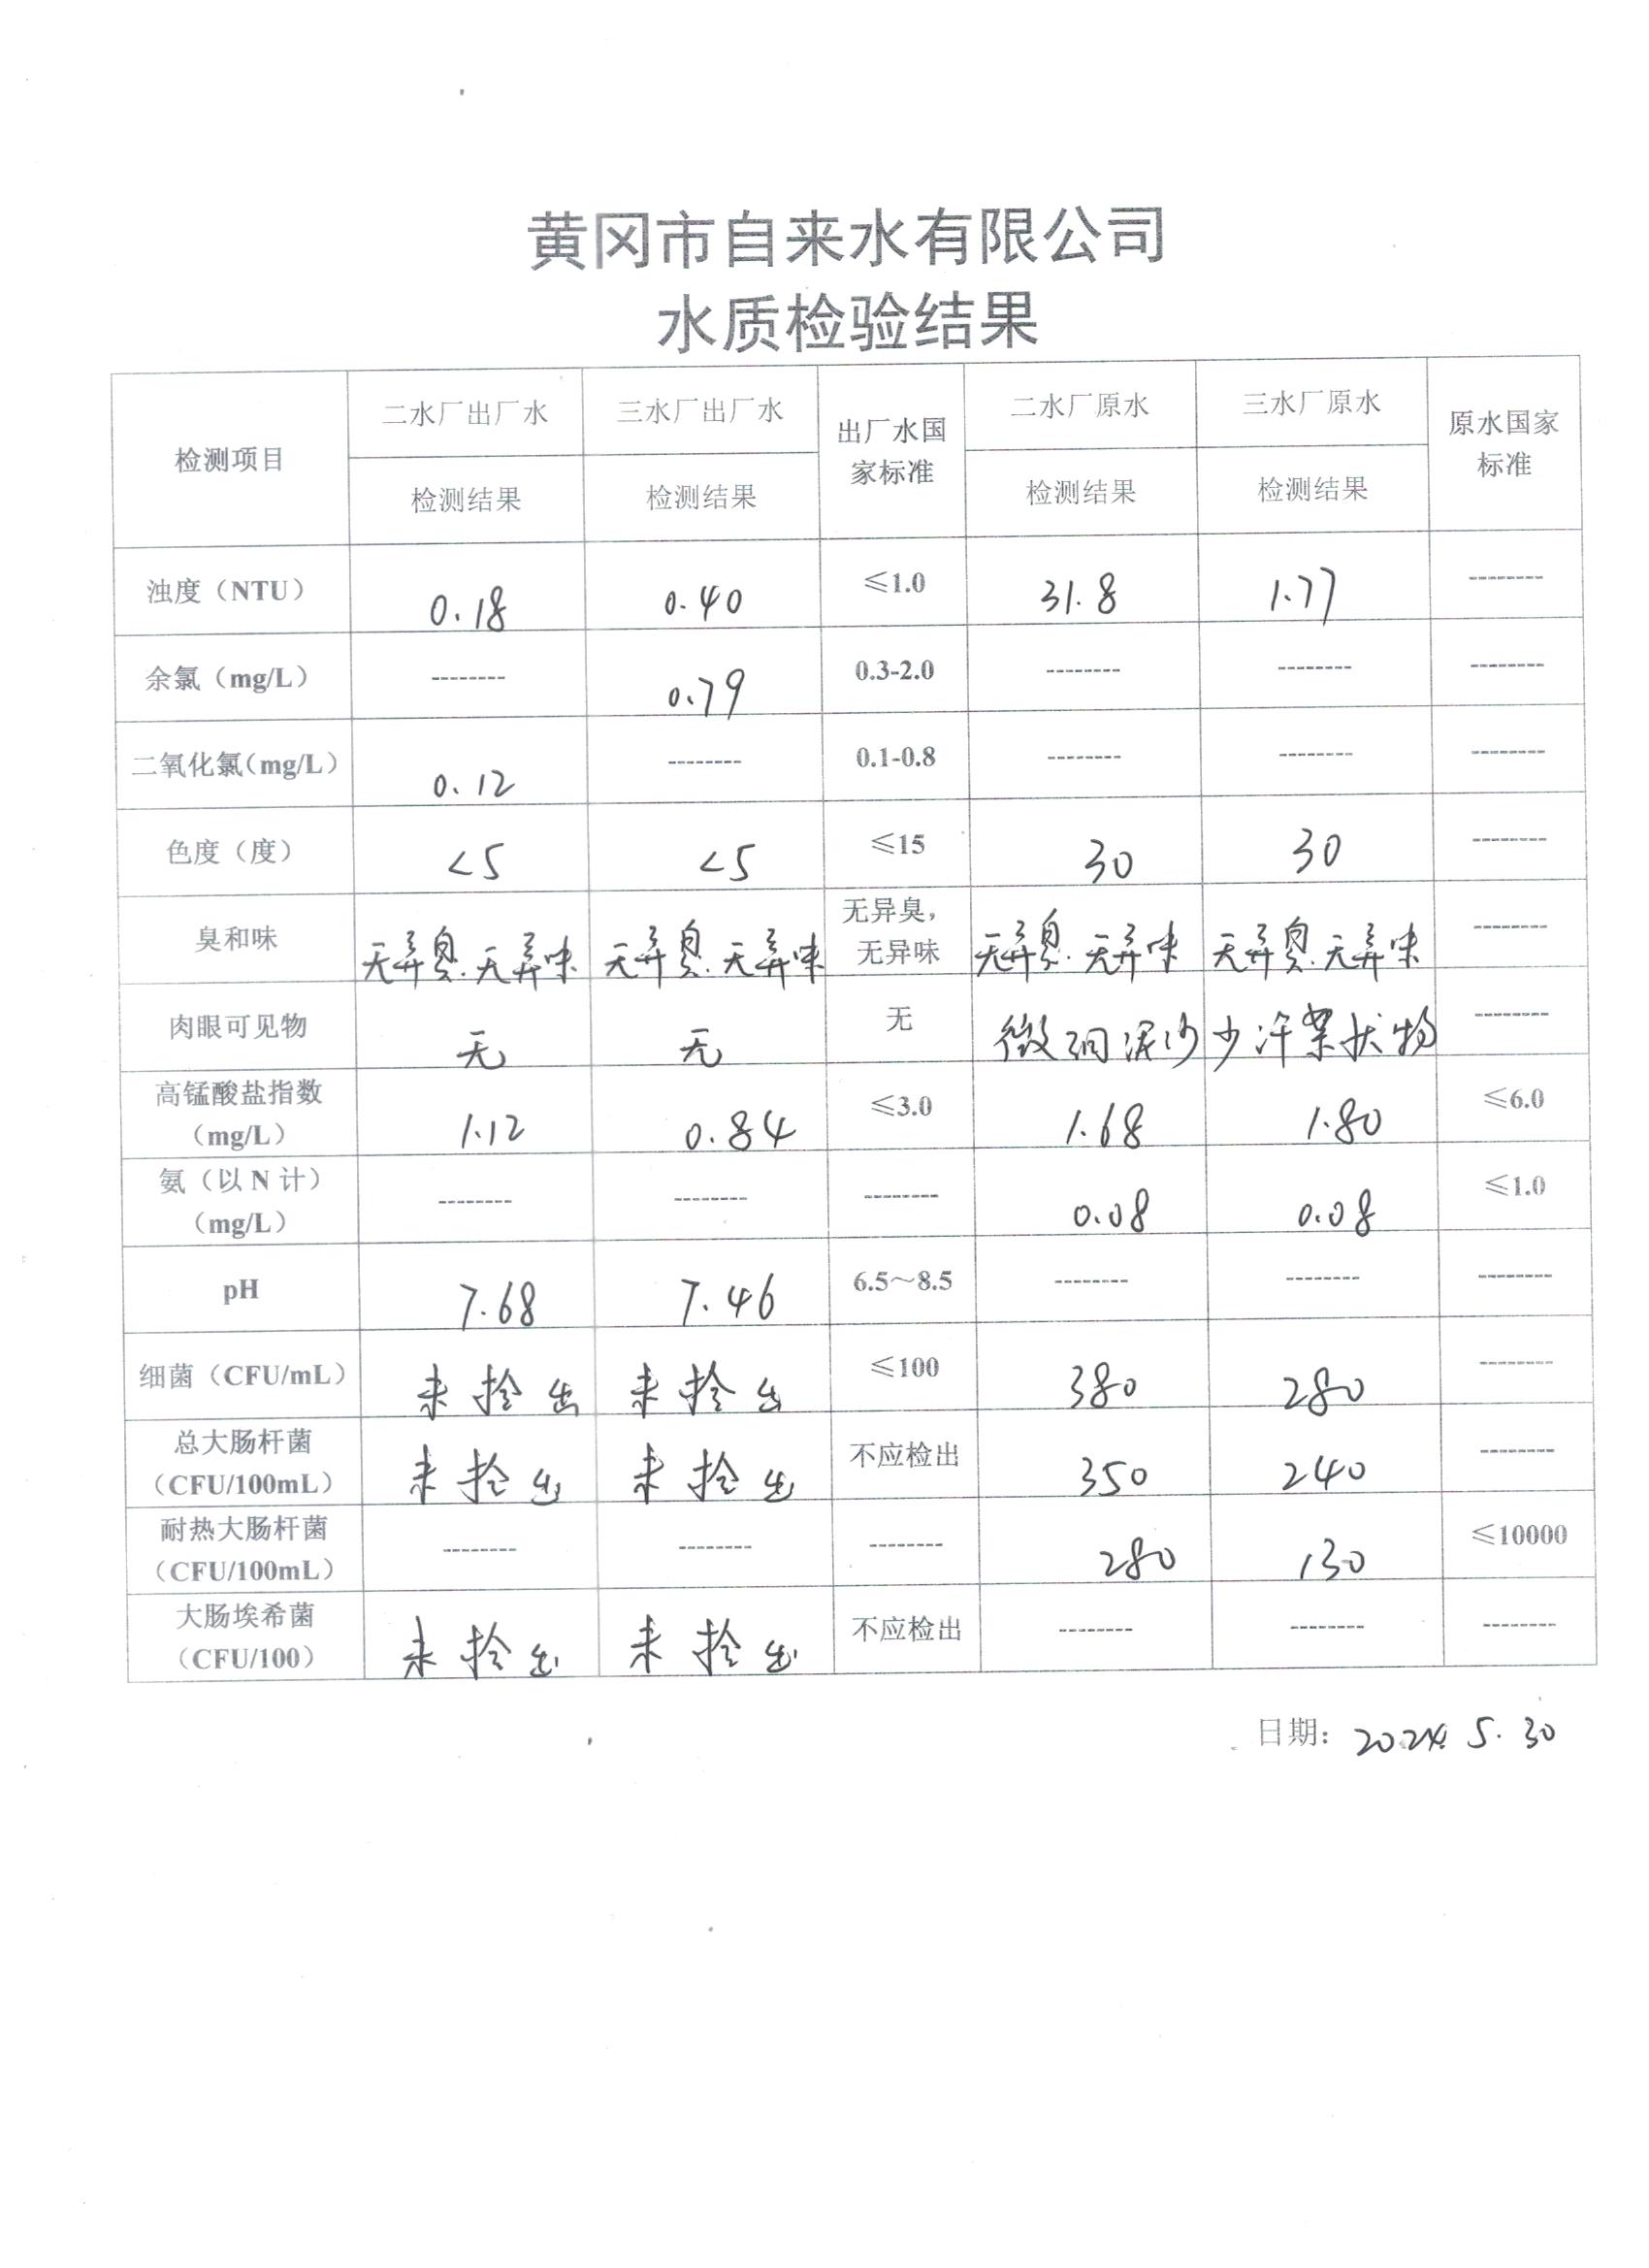 黄冈市自来水有限公司
水质检验结果
检测项目 二水厂出厂水 三水厂出厂水 出厂水国家标准 二水厂原水 三水厂原水 原水国家标准
检测结果 检测结果 检测结果 检测结果
浊度（NTU） 0.18 0.40 ≤1.0 31.8 1.77 --------
余氯（mg/L） -------- 0.79 0.3-2.0 -------- -------- --------
二氧化氯（mg/L） 0.12 -------- 0.1-0.8 -------- -------- --------
色度（度） <5 <5 ≤15 30 30 --------
臭和味 无异臭.无异味 无异臭.无异味 无异臭，无异味 无异臭.无异味 无异臭.无异味 --------
肉眼可见物 无 无 无 微细泥沙 少许絮状物 --------
高锰酸盐指数（mg/L） 1.12 0.84 ≤3.0 1.68 1.80 ≤6.0
氨（以 N 计）（mg/L） -------- -------- -------- 0.08 0.08 ≤1.0
pH 7.68 7.46 6.5～8.5 -------- -------- --------
细菌（CFU/mL） 未检出 未检出 ≤100 380 280 --------
总大肠杆菌（CFU/100mL） 未检出 未检出 不应检出 350 240 --------
耐热大肠杆菌（CFU/100mL） -------- -------- -------- 280 130 ≤10000
大肠埃希菌（CFU/100） 未检出 未检出 不应检出 -------- -------- --------
日期：2024.5.30